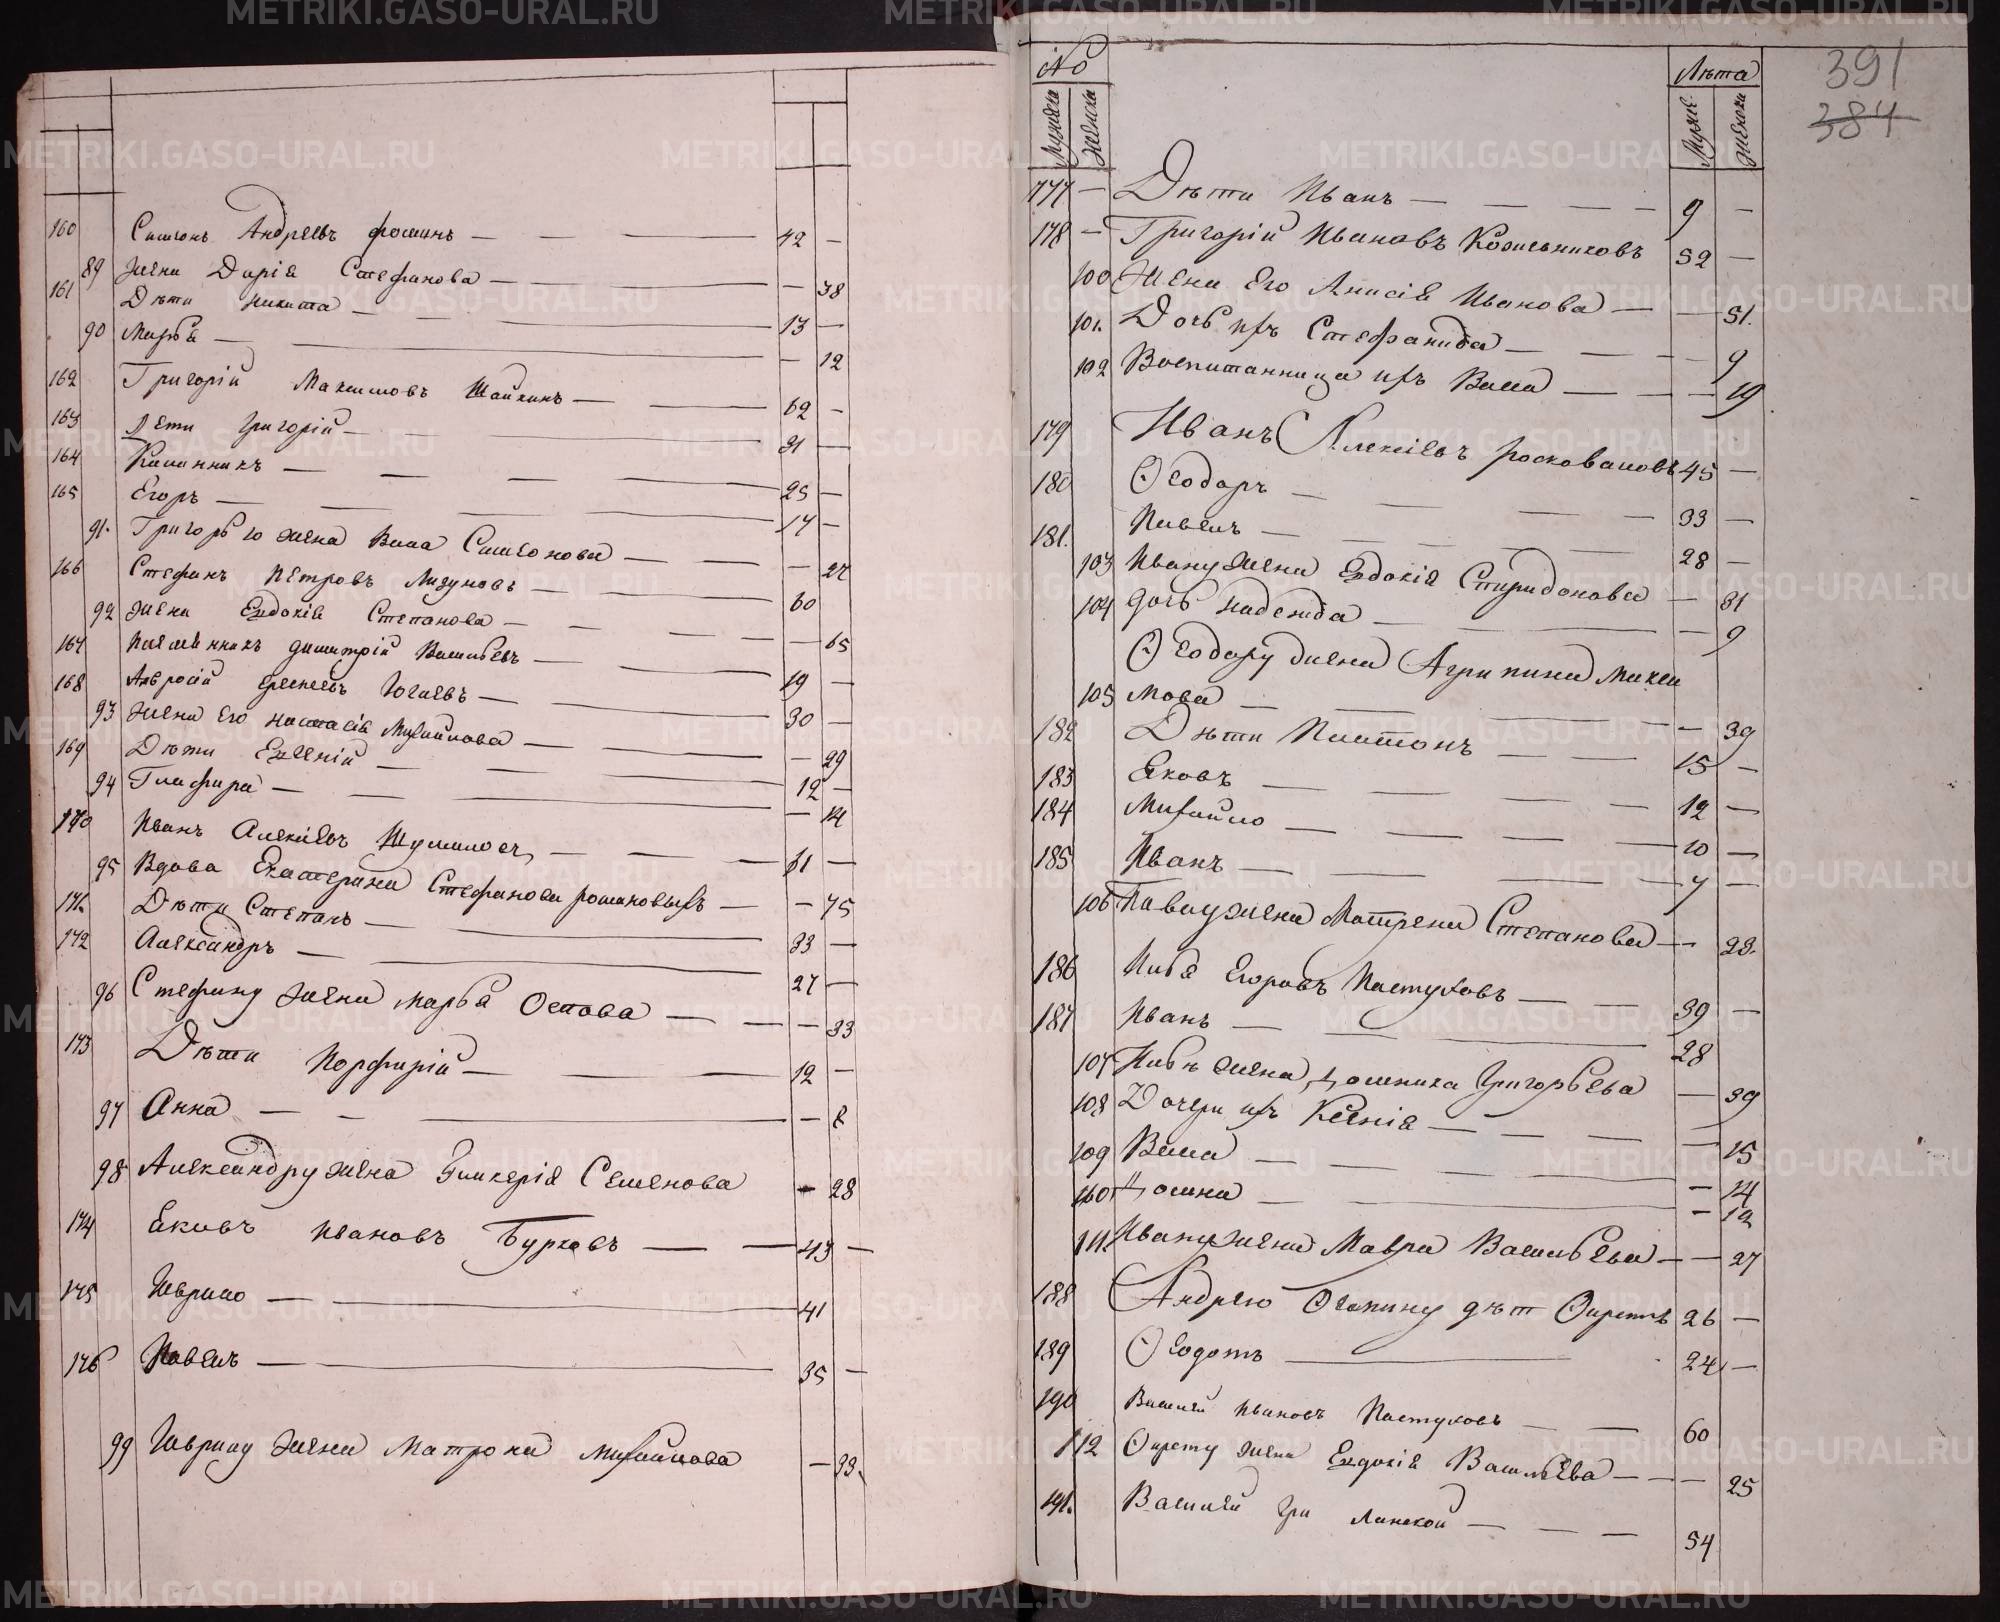 160 Симеонъ Андреевъ фоминъ — 42 —
89 Жена Дарія Стефанова — — 38
161 Дѣти Никита — 13 —
90 Марѳа — — 12
162 Григорій Максимовъ Шайкинъ — 62 —
163 Дети Григорій — 31 —
164 Калинникъ — 25 —
165 Егоръ — 17 —
91. Григорью жена Васа Симеонова — — 27
166 Стефанъ Петровъ Лизуновъ — 60
92 Жена Евдокія Степанова — — 65
167 Племянникъ Димитрій Васильевъ — 19 —
168 Амвросій — 30 —
93 Жена его Настасія Михайлова — — 29
169 Дѣти Евгеній — 12 —
94 Глафира — — 14
170 Иванъ Алексіевъ Шумиловъ — 31 —
95 Вдова Екатерина Стефанова романовыхъ — — 75
171. Дѣти Степанъ — 33 —
172 Александръ — 27 —
96 Стефану жена Марѳа Осипова — — 33
173 Дѣти Порфирій — 12 —
97 Анна — — 8
98 Александру жена Гликерія Семенова — 28
174 Яковъ Ивановъ Бурковъ — 43 —
175 Гаврило — 41
176 Павелъ — 35 —
99 Гаврилу жена Матрона Михайлова — 33.
№ Лѣта
Мужска Женска Мужск Женска
391
384
177 — Дѣти Иванъ — 9 —
178 — Григорій Ивановъ Кожевниковъ 52 —
100 Жена Его Анисія Иванова — — 51.
101. Дочь ихъ Стефанида — — 9
102 Воспитанница ихъ Васса — — 19
179 Иванъ Алексіевъ росковаловъ 45 —
180 Ѳеодоръ — 33 —
181. Павелъ — 28 —
103 Ивану жена Евдокія Спиридонова — 31
104 дочь Надежда — — 9
Ѳеодору жена Агрипина Макси
105 мова — — 39
182 Дѣти Платонъ — 15 —
183 Яковъ — 12 —
184 Михайло — 10 —
185 Иванъ — 7 —
106 Павлу жена Матрена Степанова — 28.
186 Егоровъ Пастуховъ — 39 —
187 Иванъ — 28
107 жена Домника Григорьева — 39
108 Дочери ихъ Ксенія — 15
109 Васса — — 14
110 Домна — — 12
111. Ивану жена Мавра Васильева — — 27
188 Андрею дѣт 26 —
189 Ѳеодотъ — 24 —
190 Василій Ивановъ Пастуховъ — 60
112 жена Евдокія Васильева — — 25
191. Василій Гри — 54